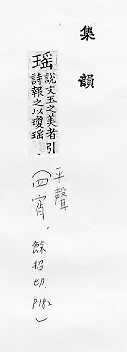 集韻
瑤
說文玉之美者引
詩報之以瓊瑤
平聲
(四宵.餘招切.P182)